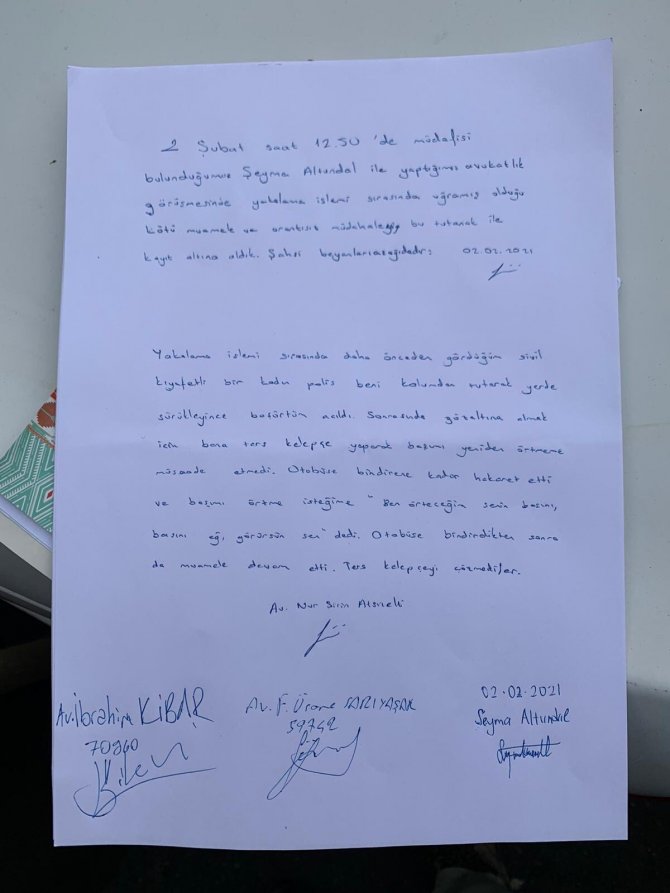 2 Şubat saat 12.50 'de müdafisi
bulunduğumuz Şeyma Altundal ile yaptığımız avukatlık
görüşmesinde yakalama işlemi sırasında uğramış olduğu
kötü muamele ve orantısız müdahaleyi bu tutanak ile
kayıt altına aldık. Şahsi beyanları aşağıdadır: 02.02.2021
Yakalama işlemi sırasında daha önceden gördüğüm sivil
kıyafetli bir kadın polis beni kolumdan tutarak yerde
sürükleyince başörtüm açıldı. Sonrasında gözaltına almak
için bana ters kelepçe yaparak başımı yeniden örtmeme
müsaade etmedi. Otobüse bindirene kadar hakaret etti
ve başımı örtme isteğime "Ben örteceğim senin başını,
başını eğ, görürsün sen" dedi. Otobüse bindirdikten sonra
da muamele devam etti. Ters kelepçeyi çözmediler.
Av. Nur Sirin
Av. İbrahim KİBAR
70940
Av. F. SARIYAŞAR
59742
02.02.2021
Şeyma Altundal